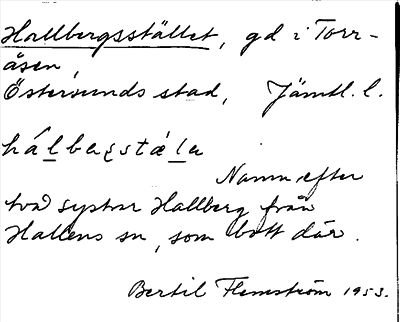 Hallbergsstället, gd i Torr-
åsen,
Östersunds stad, Jämtl. l.
hálbaʀstä́la
Namn efter
två systrar Hallberg från
Hallens sn, som bott där.
Bertil Flemström 1953.